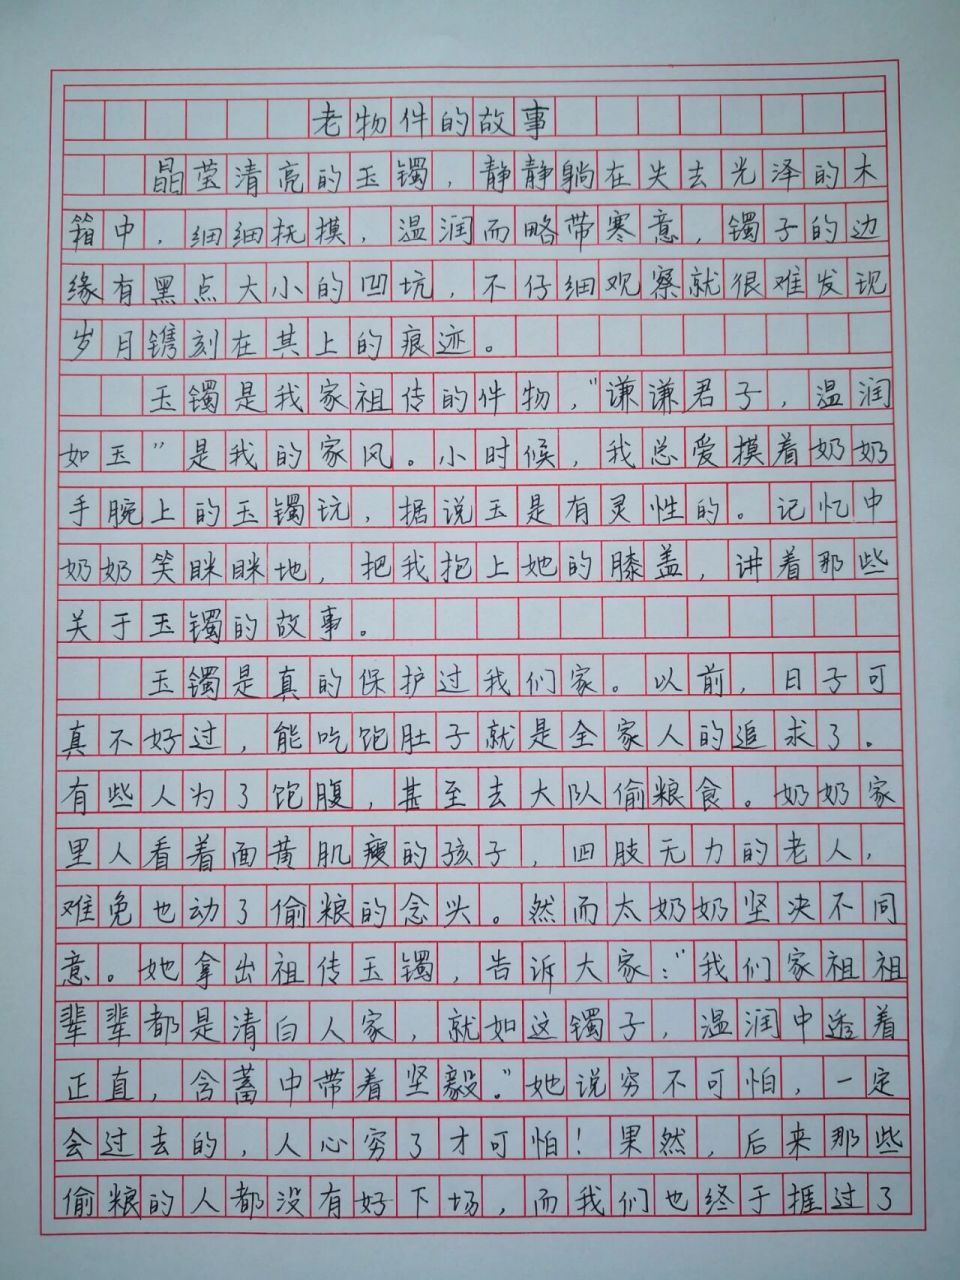 老物件的故事
晶莹清亮的玉镯，静静躺在失去光泽的木
箱中，细细抚摸，温润而略带寒意，镯子的边
缘有黑点大小的凹坑，不仔细观察就很难发现
岁月镌刻在其上的痕迹。
玉镯是我家祖传的件物，“谦谦君子，温润
如玉”是我的家风。小时候，我总爱摸着奶奶
手腕上的玉镯玩，据说玉是有灵性的。记忆中
奶奶笑眯眯地，把我抱上她的膝盖，讲着那些
关于玉镯的故事。
玉镯是真的保护过我们家。以前，日子可
真不好过，能吃饱肚子就是全家人的追求了。
有些人为了饱腹，甚至去大队偷粮食。奶奶家
里人看着面黄肌瘦的孩子，四肢无力的老人，
难免也动了偷粮的念头。然而太奶奶坚决不同
意。她拿出祖传玉镯，告诉大家：“我们家祖祖
辈辈都是清白人家，就如这镯子，温润中透着
正直，含蓄中带着坚毅。”她说穷不可怕，一定
会过去的，人心穷了才可怕！果然，后来那些
偷粮的人都没有好下场，而我们也终于捱过了